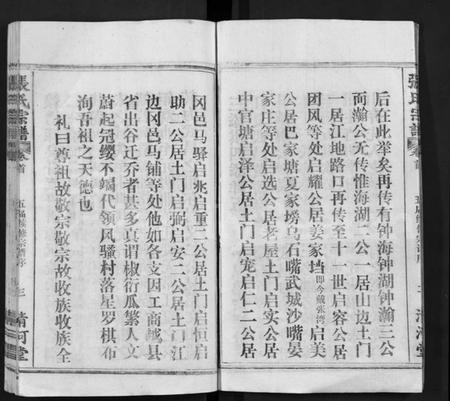 張氏宗譜 卷首
后在此举矣再传有钟海钟湖钟瀚三公
而瀚公无传惟海湖二公一居山边土门
一居江地路口再传至十一世启容公居
团风等处启耀公居美家垱即今戴张湾启美
公居巴家塘夏家塝乌石嘴武城沙嘴晏
家庄等处启选公居老屋土门启实公居
中官塘启泽公居土门启宠启仁二公居
清河堂
冈邑马驿启兆启重二公居土门启恒启
助二公居土门启弼启安二公居土门江
边冈邑马铺等处他如各支因工商越县
省出谷迁乔者甚多真谓椒衍瓜繁人文
蔚起冠缨不竭代领风骚村落星罗棋布
洵吾祖之天德也
礼曰尊祖故敬宗敬宗故收族收族全
張氏宗譜 卷首
五届续修宗谱序
三
清河堂